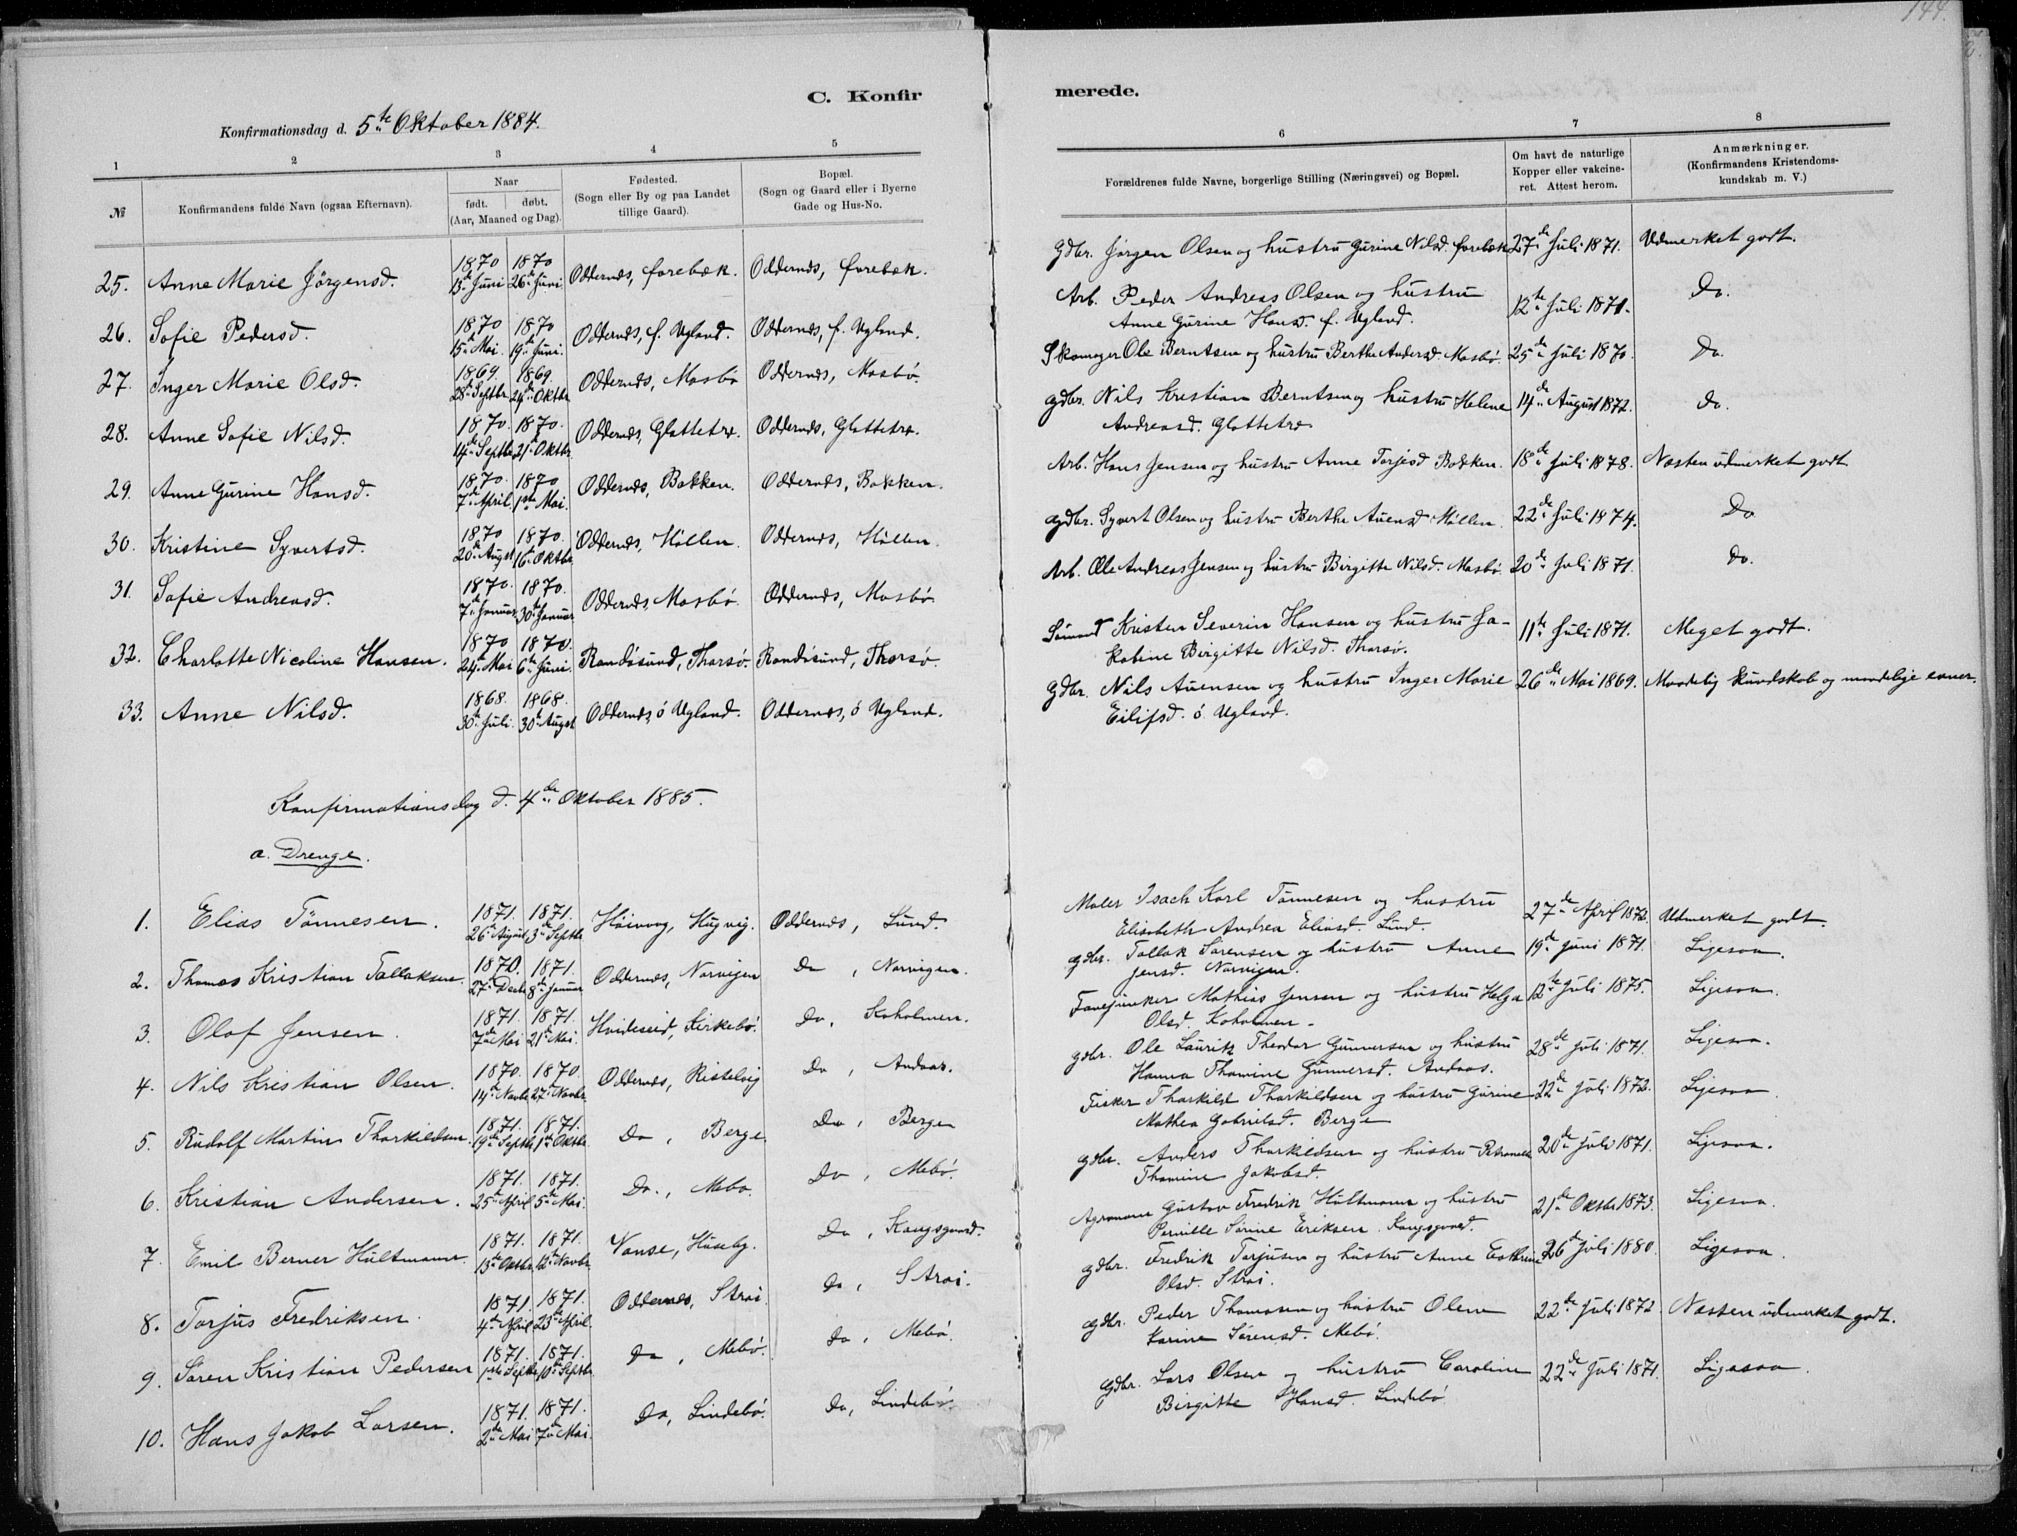 144.
C. Konfirmerede.
Konfirmationsdag d. 5te Oktober 1884.
1 2 3 4 5 6 7 8
№ Konfirmandens fulde Navn (ogsaa Efternavn). Naar født. døbt. (Aar, Maaned og Dag). Fødested. (Sogn eller By og paa Landet tillige Gaard). Bopæl. (Sogn og Gaard eller i Byerne Gade og Hus-No. Forældrenes fulde Navne, borgerlige Stilling (Næringsvei) og Bopæl. Om havt de naturlige Kopper eller vakcineret. Attest herom. Anmærkninger. (Konfirmandens Kristendomskundskab m. V.)
25. Anne Marie Jörgensd. 1870 13de Juni 1870 26de Juni Oddernes, forebæk. Oddernes, forebæk. Gdbr. Jørgen Olsen og hustru Gurine Nilsd. forebæk 27de Juli 1871. Udmerket godt.
26. Sofie Pedersd. 1870 15de Mai. 1870 19de Juni. Oddernes, f. Ugland. Oddernes, f. Ugland. Arb. Peder Andreas Olsen og hustru Anne Gurine Hansd. f. Ugland. 12te Juli 1871. Do.
27. Inger Marie Olsd. 1869. 28de Septbr 1869. 24de Oktbr Oddernes, Mosbø Oddernes, Mosbø. Skomager Ole Berntsen og hustru Berthe Andersd. Mosbø. 25de Juli 1870. Do.
28. Anne Sofie Nilsd. 1870. 14de Septbr 1870. 21de Oktbr. Oddernes, Glattetre. Oddernes, Glattetre. gdbr. Nils Kristian Berntsen og hustru Helene Andreasd. Glattetre 14de August 1872. do.
29. Anne Gurine Hansd. 1870. 7de April 1870 1ste Mai. Oddernes, Bakken. Oddernes, Bakken. Arb. Hans Jensen og hustru Anne Torjesd Bakken. 18de Juli 1878. Næsten udmerket godt
30. Kristine Syvertsd. 1870 20de Augst 1870. 16de Oktbr Oddernes, Höllen. Oddernes, Höllen. gdbr. Syvert Olsen og hustru Berthe Auensd Höllen. 22de Juli 1874. Do
31. Sofie Andreasd. 1870. 7de Januar 1870. 30te Januar Oddernes Mosbø. Oddernes, Mosbø Arb. Ole Andreas Jensen og hustru Birgitte Nilsd. Mosbø. 20de Juli 1871. Do.
32. Charlotte Nicoline Hansen. 1870 24de Mai 1870. 6te Juni. Randøsund, Thorsø. Randøsund, Thorsø. Sömand Kristen Severin Hansen og hustru Jakobine Birgitte Nilsd. Thorsø. 11te Juli 1871. Meget godt.
33. Anne Nilsd. 1868. 30te Juli. 1868. 30te Augst Oddernes, ö Ugland. Oddernes, ö Ugland. gdbr. Nils Auensen og hustru Inger Marie Eilifsd. ö. Ugland. 26de Mai 1869. Maadelig kundskab og maadelige evner.
Konfirmationsdag d. 4de Oktober 1885.
a. Drenge.
1. Elias Tönnesen. 1871. 26de August 1871. 3de Septbr Höivaag, Hugvig. Oddernes, Lund. Maler Isach Karl Tönnesen og hustru Elisabeth Andrea Eliasd. Lund. 27de April 1872. Udmerket godt.
2. Thomas Kristian Tallaksen. 1870. 27de Decbr 1871. 8de Januar Oddernes, Narvigen Do, Narvigen. gdbr. Tallak Sørensen og hustru Anne Jensd. Narvigen. 19de Juni 1871. Ligesaa.
3. Olaf Jensen. 1871. 7de Mai 1871. 21de Mai. Hvideseid, Kirkebö. Do, Koholmen. Fanejunker Mathias Jensen og hustru Helga Olsd. Koholmen. 12te Juli 1875. Ligesaa.
4. Nils Kristian Olsen. 1870. 14de Novbr 1870. 27de Novbr. Oddernes, Ristelvig Do, Andaas. gdbr. Ole Laurits Theodor Gunnersen og hustru Hanna Thomine Gunnersd. Andaas. 28de Juli 1871. Ligesaa.
5. Rudolf Martin Thorkildsen. 1871. 19de Septbr 1871. 1ste Oktbr. Do, Berge. Do, Berge Fisker Thorkild Thorkildsen og hustru Gurine Mathea Gabrielsd. Berge 22de Juli 1872. Ligesaa
6. Kristian Andersen. 1871. 25de April 1871. 5te Mai. Do., Mebø. Do, Mebø. gdbr. Anders Thorkildsen og hustru Petronelle Thomine Jakobsd. 20de Juli 1871. Ligesaa.
7. Emil Berner Hultmann. 1871. 13de Oktbr. 1871. 12te Novbr. Vanse, Huseby. Do, Kongsgaard. Agronom Gustav Fredrik Hultmann og hustru Pernille Sörine Eriksen. Kongsgaard. 21de Oktbr 1873. Ligesaa.
8. Torjus Fredriksen. 1871. 4de April 1871. 23de April. Oddernes, Strai. do, Strai. gdbr. Fredrik Torjusen og hustru Anne Olsd. Strai. 26de Juli 1880. Ligesaa.
9. Sören Kristian Pedersen 1871. 1ste Septbr 1871. 10de Septbr. do, Mebö. do, Mebö. gdbr. Peder Thomasen og hustru Olene Karine Sørensd. Mebö. 22de Juli 1872 Næsten udmerket godt.
10. Hans Jakob Larsen. 1871. 2de Mai 1871. 7de Mai. do, Lindebö. do, Lindebö. gdbr. Lars Olsen og hustru Caroline Birgitte Hansd. Lindebö 22de Juli 1871. Ligesaa.